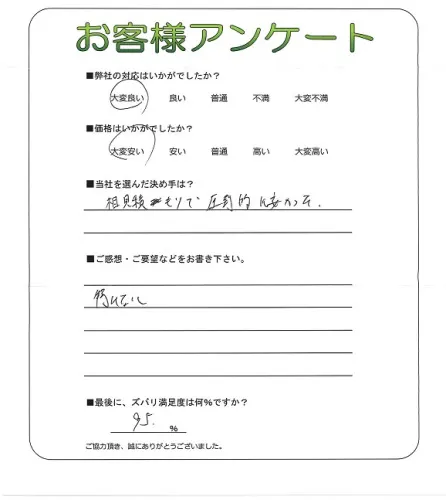 お客様アンケート
■弊社の対応はいかがでしたか？
大変良い 良い 普通 不満 大変不満
■価格はいかがでしたか？
大変安い 安い 普通 高い 大変高い
■当社を選んだ決め手は？
相見積もりで圧倒的に安かった.
■ご感想・ご要望などをお書き下さい。
特になし
■最後に、ズバリ満足度は何%ですか？
95. %
ご協力頂き、誠にありがとうございました。